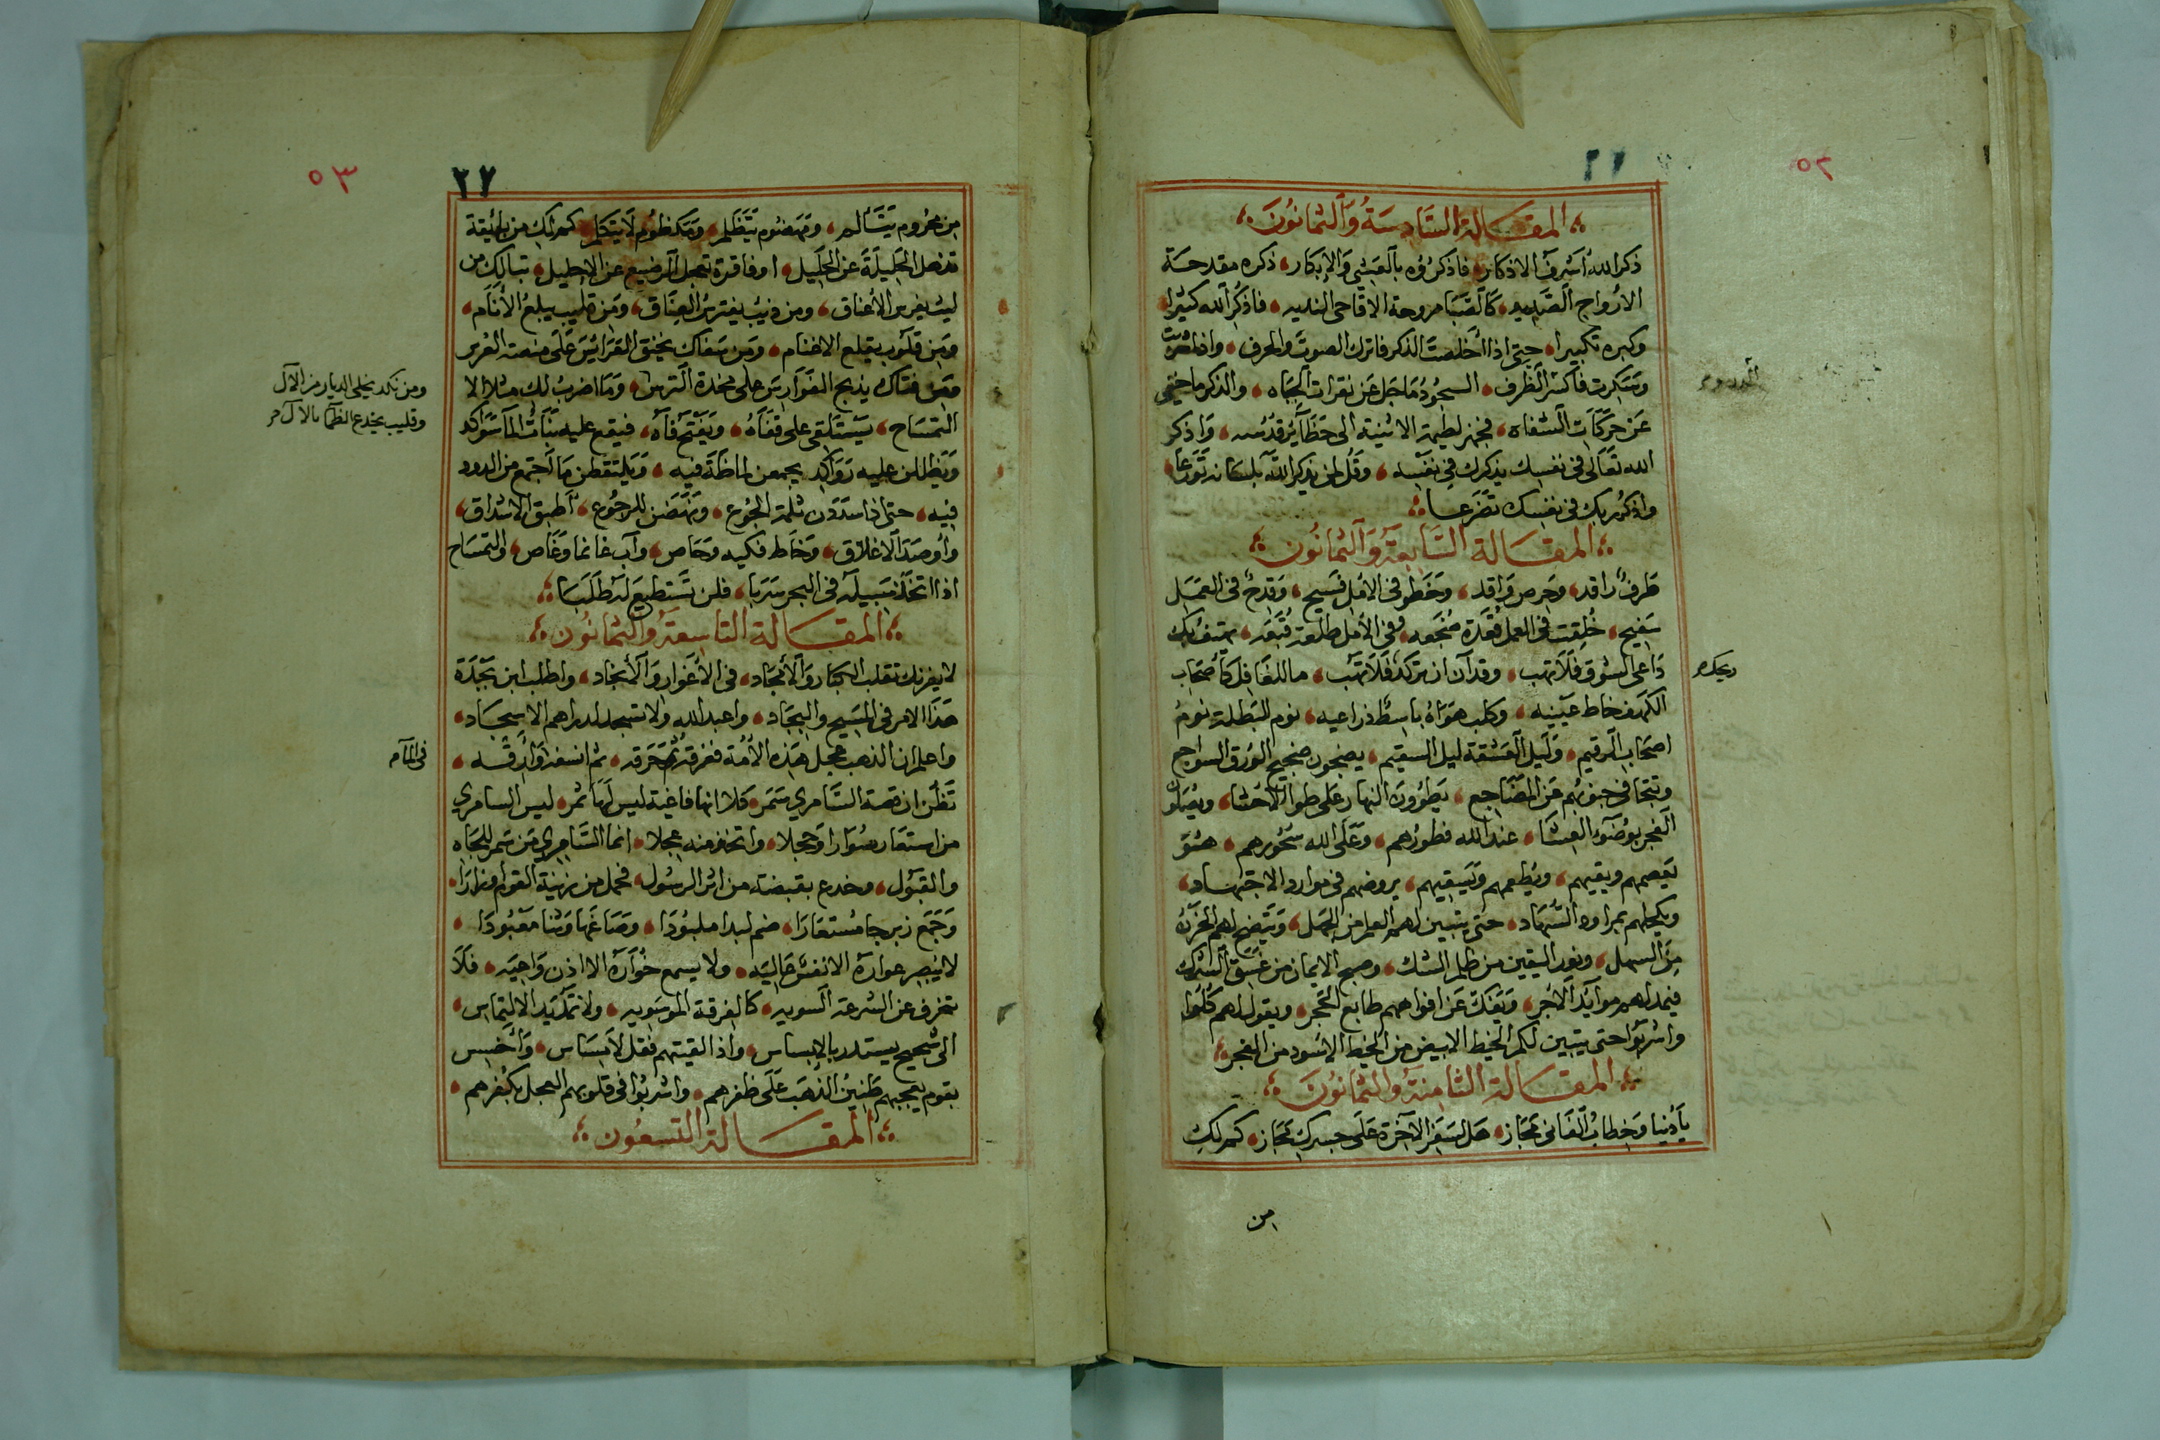 ٥٢
المقالة السادسة والثمانون
ذكر الله أشرف الاذكار فاذكروه بالعشي والإبكار ذكره مقدحة
الارواح الصديه كالصبا مروحة الاقاحى النديه فاذكر الله كثيرا
وكبره تكبيرا حتى اذا أخلصت الذكر فاترك الصوت والحرف واذا شربت
وسكرت فاكسر الظرف السجود ما جل عن نقرات الجباه والذكر ما خفي
عن حركات الشفاه فجهز لطيمة الاثنية الى حظائر قدسه واذكر
الله تعالى فى نفسك يذكرك فى نفسه وقل لمن يذكر الله بلسانه تورعا
واذكر ربك فى نفسك تضرعا
المقالة السابعة والثمانون
طرف راقد وحرص واقد وخطو فى الأمل فسيح وقدح فى العمل
سفيح خلقت فى العمل قعدة ضجعه وفى الأمل طلعة قبعه يهتف بك
داعى الشوق فلا تهب وقد آن ان تركد فلا تهب ما للغافل كأصحاب
ريحك
الكهف خاط عينيه وكلب هواه باسط ذراعيه نوم البطلة نوم
اصحاب الرقيم وليل العشقة ليل السقيم يضجون ضجيج الورق السواجع
وتتجافى جنوبهم عن المضاجع يطوون النهار على طوارق الاحشا ويصلون
الفجر بوضوء العشا عند الله فطورهم وعلى الله سحورهم هو
يعصمهم ويقيهم ويطعمهم ويسقيهم يروضهم فى موارد الاجتهاد
ويكحلهم بمراود السهاد حتى يتبين لهم العلم من الجهل ويتضح لهم الحزن
من السهل ونور اليقين من ظلم الشك وصبح الايمان من غسق الشرك
فيمد لهم موائد الأجر ويفك عن افواههم طابع الحجر ويقول لهم كلوا
واشربوا حتى يتبين لكم الخيط الابيض من الخيط الاسود من الفجر
المقالة الثامنة والثمانون
يا دنيا وخطاب الفانى مجاز هل لسفر الآخرة على جسرك مجاز كم لك
من
٥٣
٢٧
من محروم يتسالم ومهضوم يتظلم ومكظوم لا يتكلم
تذهل الحليلة عن الحليل او فاقرة تعجل الرضيع عن الاحليل تبا لك من
ليث يفرس الأعناق ومن ذئب يفترس العناق ومن قليب يبلع الأنام
ومن قلوب يقلع الاغنام ومن سفاك يخنق العرائس على منصة العرس
ومن فتاك يذبح الفوارس على مخدة الترس وما اضرب لك مثلا الا
ومن نكد يخلى الديار من الآل
وقليب يخدع الظمآ بالآل
التمساح يستلقى على قفاه ويفتح فاه فيقع عليه بنات الماء سواكد
ويظللن عليه رواكد يجمعن لماظة فيه ويلتقطن ما اجتمع من الدود
فيه حتى اذا سددن ثلمة الجوع ونهضن للرجوع أطبق الاشداق
وأوصد الاغلاق وخاط فكيه وحاص وآب غانما وغاص والتمساح
اذا اتخذ سبيله فى البحر سربا فلن تستطيع له طلبا
المقالة التاسعة والثمانون
لا يغرنك تقلب الكبار والأمجاد فى الأغوار والأنجاد واطلب ابن بجدة
هذا الامر فى المسيح والبجاد واعبد الله ولا تسجد لدراهم الاسجاد
واعلم ان الذهب عجل هذه الأمة فغرقه ثم حرقه ثم انسفه او ادققه
تظن ان قصة السامري سمر كلا انها فاغية ليس لها ثمر ليس السامري
من استعار سوارا وحجلا واتخذ منه عجلا انما السامري من سمر للجاه
والقبول وخدع بقبضة من اثر الرسول فحمل من زينة القوم اوزارا
وجمع زبرجا مستعارا ضم لبدا ملبودا وصاغها وثنا معبودا
لا يبصر عواره الا نفس حاليه ولا يسمع خواره الا اذن واعيه فلا
تنحرف عن الشرعة السويه كالفرقة الموسويه ولا تمد يد الالتماس
الى شحيح يستدر بالابساس واذا لقيتهم فقل لا مساس وأخسس
بقوم يعجبهم طنين الذهب على ظفرهم واشربوا فى قلوبهم العجل بكفرهم
المقالة التسعون